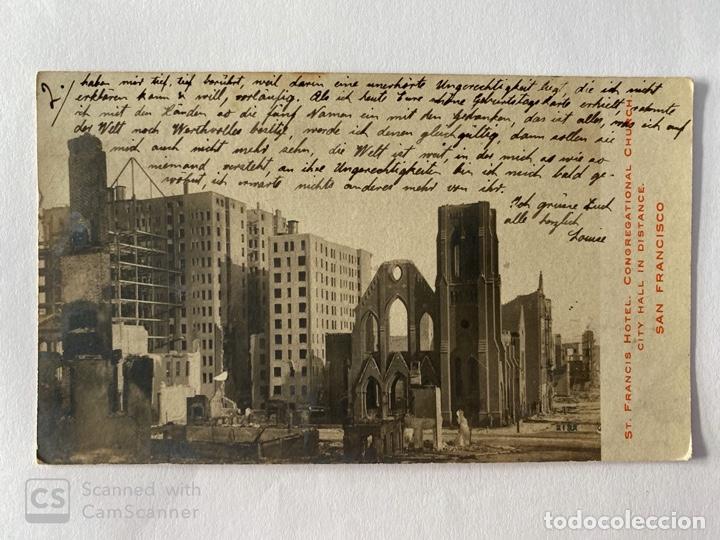 2./
haben mir tief, tief berührt, weil darin eine unerhörte Ungerechtigkeit liegt, die ich nicht
erklären kann & will, vorläufig. Als ich heute Eure schöne Geburtstagskarte erhielt,
ich mit den Händen so die fünf Namen ein mit den Gedanken, das ist alles, was ich auf
der Welt noch Werthvolles besitze, werde ich denen gleichgültig, dann sollen sie
mich auch nicht mehr sehn, die Welt ist weit, in der mich so wie so
niemand versteht, an ihre Ungerechtigkeiten bin ich auch bald ge-
wöhnt, ich erwarte nichts anderes mehr von ihr.
Ich grüsse Euch
alle herzlich
Louise
ST. FRANCIS HOTEL. CONGREGATIONAL CHURCH
CITY HALL IN DISTANCE.
SAN FRANCISCO
CS Scanned with
CamScanner
todocoleccion.net